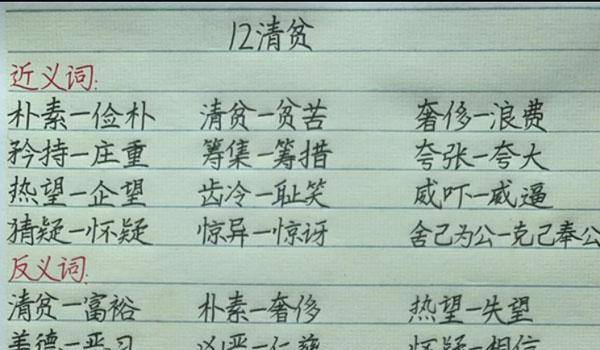 12清贫
近义词:
朴素—俭朴 清贫—贫苦 奢侈—浪费
矜持—庄重 筹集—筹措 夸张—夸大
热望—企望 齿冷—耻笑 威吓—威逼
猜疑—怀疑 惊异—惊讶 舍己为公—克己奉公
反义词:
清贫—富裕 朴素—奢侈 热望—失望
美德—恶习 凶恶—仁慈 怀疑—相信